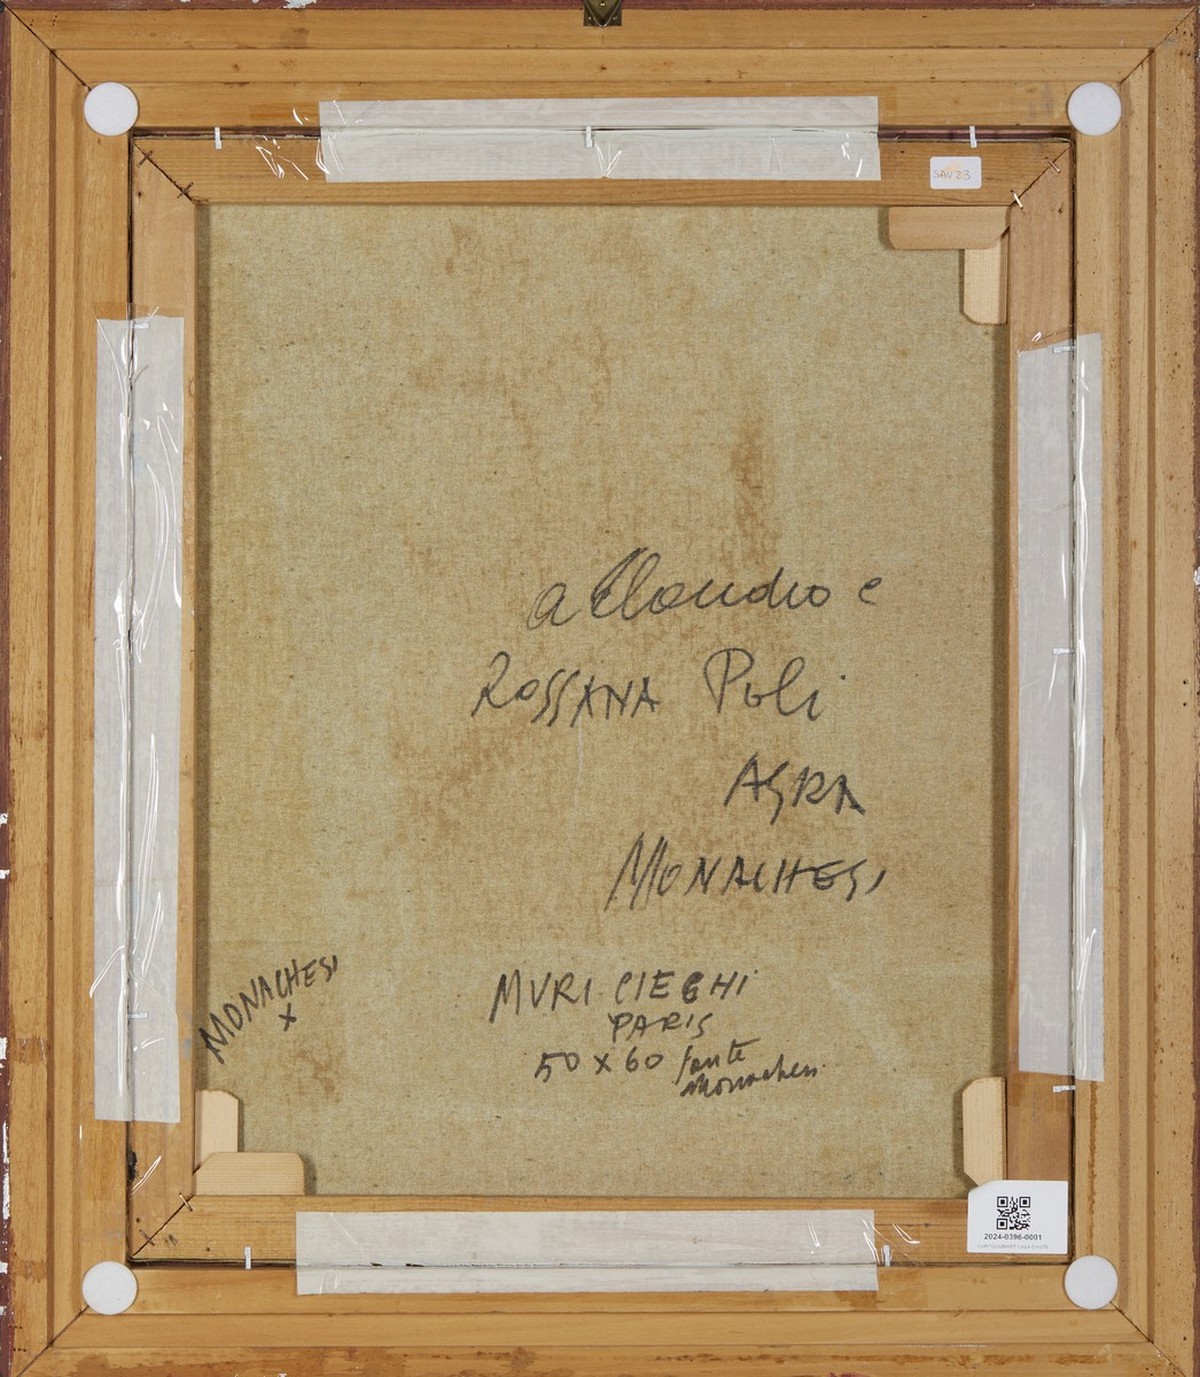 SAV 23
a Claudio e
ROSSANA Poli
AGRA
MONACHESI
MONACHESI
x
MURI CIECHI
PARIS
50 x 60
Monachesi
2024-0396-0001